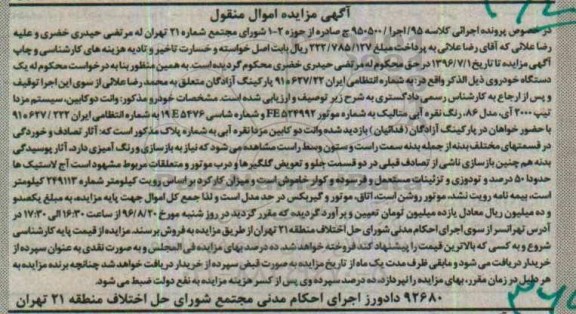 آگهی مزایده اموال منقول
در خصوص پرونده اجرائی کلاسه ۹۵/اجرا/۹۵۰۵۰۰ ج صادره از حوزه ۲-۱۰ شورای مجتمع شماره ۲۱ تهران له مرتضی حیدری خضری و علیه
رضا علائی که آقای رضا علائی به پرداخت مبلغ ۲۲۲/۷۸۵/۱۲۷ ریال بابت اصل خواسته و خسارت تاخیر و تادیه هزینه های کارشناسی و چاپ
آگهی مزایده تا تاریخ ۱۳۹۶/۷/۱ در حق محکوم له مرتضی حیدری خضری محکوم گردیده است. به همین منظور بنا به درخواست محکوم له یک
دستگاه خودروی ذیل الذکر واقع در: به شماره انتظامی ایران ۲۲/ ۶۲۷ ه ۹۱ پارکینگ آزادگان متعلق به محمد رضا علائی از سوی این اجرا توقیف
و پس از ارجاع به کارشناس رسمی دادگستری به شرح زیر توصیف و ارزیابی شده است. مشخصات خودرو مذکور: وانت دو کابین، سیستم مزدا
تیپ ۲۰۰۰ آی، مدل ۸۶، رنگ نقره آبی متالیک به شماره موتور FE ۵۲۴۹۹۲ و شماره شاسی ۱۹E۵۴۷۶ به شماره انتظامی ایران ۲۲ / ۶۲۷ ه ۹۱
با حضور خواهان در پارکینگ آزادگان (فدائیان) بازدید شده وانت دو کابین مزدا نقره آبی به شماره پلاک مذکور است که: آثار تصادف و خوردگی
در قسمتهای مختلف بدنه از جمله بدنه سمت راست و ستون وسط راست مشاهده می شود که نیاز به بازسازی و رنگ آمیزی دارد. آثار پوسیدگی
بدنه هم چنین بازسازی ناشی از تصادف قبلی در دو قسمت جلو و تعویض گلگیرها و درب موتور و متعلقات مربوط مشهود است آج لاستیک ها
حدود ۵۰ درصد و تودوزی و تزئینات مستعمل و فرسوده و کولر خاموش است و میزان کارکرد بر اساس رویت کیلومتر شماره ۲۴۹۱۱۳ کیلومتر
است، بیمه نامه رویت نشد، موتور روشن است. اتاق، موتور و گیربکس در حد مدل است و لذا جمع کل اموال جهت پایه مزایده، به مبلغ یکصدو
و ده میلیون ریال معادل یازده میلیون تومان تعیین و برآورد گردیده که مقرر گردید در روز شنبه مورخ ۹۶/۸/۲۰ از ساعت ۱۶:۳۰ الی ۱۷:۳۰ در
آدرس تهرانسر از سوی اجرای احکام مدنی شورای حل اختلاف منطقه ۲۱ تهران از طریق مزایده به فروش برسند. مزایده از قیمت پایه کارشناسی
شروع و به کسی که بالاترین قیمت را پیشنهاد کند فروخته خواهد شد. ده درصد بهای مزایده فی المجلس و به صورت نقدی به عنوان سپرده از
خریدار دریافت می شود و مابقی ظرف مدت یک ماه از تاریخ مزایده به صورت قبض سپرده از خریدار دریافت خواهد شد چنانچه برنده مزایده به
هر دلیل در زمان مقرر، بهای مزایده را نپردازد ده درصد سپرده وی پس از کسر هزینه مزایده به نفع دولت ضبط می شود.
۹۲۶۸۰ دادورز اجرای احکام مدنی مجتمع شورای حل اختلاف منطقه ۲۱ تهران